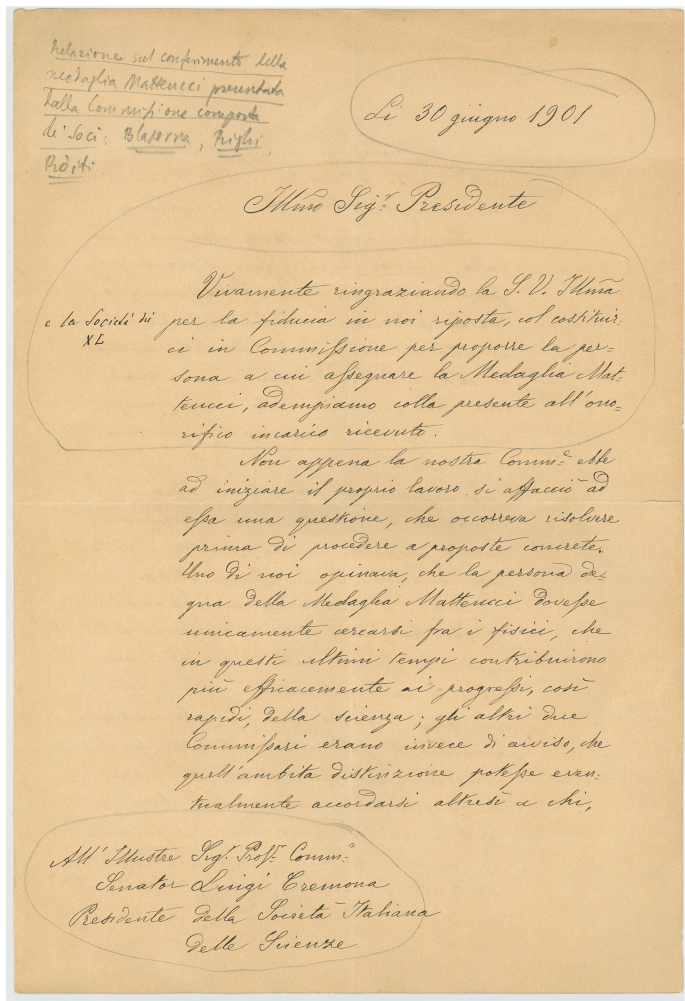 Relazione sul conferimento della
medaglia Matteucci presentata
dalla Commissione composta
dei Soci: Blaserna, Righi,
Ròiti.
Li 30 giugno 1901
Illmo Sigr. Presidente
Vivamente ringraziando la S. V. Illma
e la Società dei
XL
per la fiducia in noi riposta, col costituir-
ci in Commissione per proporre la per-
sona a cui assegnare la Medaglia Mat-
teucci, adempiamo colla presente all'ono-
rifico incarico ricevuto.
Non appena la nostra Comme. ebbe
ad iniziare il proprio lavoro, si affacciò ad
essa una questione, che occorreva risolvere
prima di procedere a proposte concrete.
Uno di noi opinava, che la persona de-
gna della Medaglia Matteucci dovesse
unicamente cercarsi fra i fisici, che
in questi ultimi tempi contribuirono
più efficacemente ai progressi, così
rapidi, della scienza; gli altri due
Commissari erano invece di avviso, che
quell'ambita distinzione potesse even-
tualmente accordarsi altresì a chi,
All'Illustre Sigr. Profr. Comme.
Senator Luigi Cremona
Presidente della Società Italiana
delle Scienze